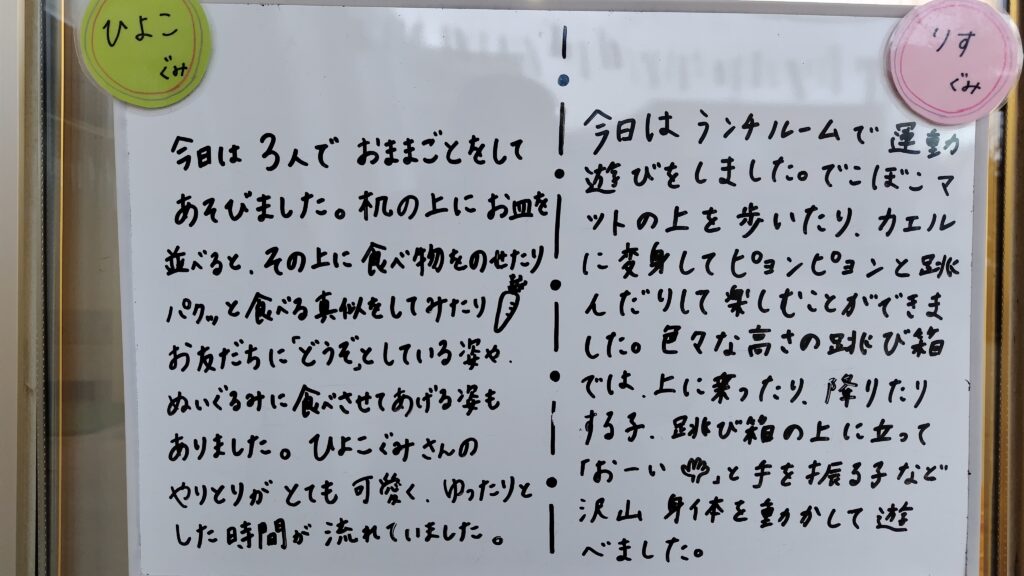 ひよこ
ぐみ
今日は 3人で おままごとをして
あそびました。机の上に お皿を
並べると、その上に 食べ物をのせたり
パクッと 食べる真似をしてみたり
お友だちに「どうぞ」としている姿や、
ぬいぐるみに食べさせてあげる姿も
ありました。ひよこぐみさんの
やりとりが とても 可愛く、ゆったりと
した時間が 流れていました。
りす
ぐみ
今日は ランチルームで 運動
遊びをしました。でこぼこマ
ットの上を 歩いたり、カエル
に変身して ピョンピョンと 跳
んだりして 楽しむことができま
した。色々な高さの跳び箱
では、上に乗ったり、降りたり
する子、跳び箱の上に立って
「おーい」と 手を振る子など
沢山 身体を動かして 遊
べました。